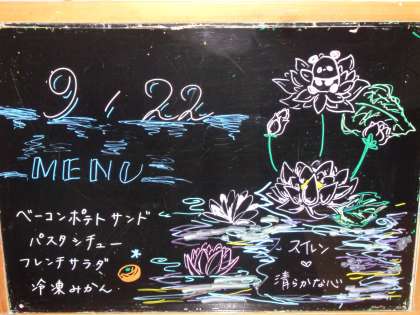 9, 22
MENU
ベーコンポテトサンド
パスタシチュー
フレンチサラダ
冷凍みかん
スイレン
♡
清らかな心